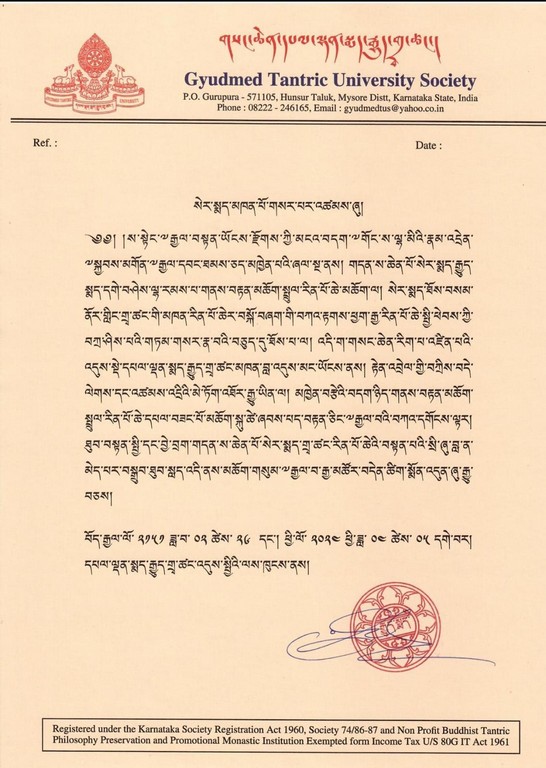 Gyudmed Tantric University Society
P.O. Gurupura - 571105, Hunsur Taluk, Mysore Distt, Karnataka State, India
Phone : 08222 - 246165, Email : gyudmedtus@yahoo.co.in
Ref. :
Date :
སེར་སྨད་མཁན་པོ་གསར་པར་འཚམས་ཞུ།
༄༅། །ས་སྟེང་༧རྒྱལ་བསྟན་ཡོངས་རྫོགས་ཀྱི་མངའ་བདག་༧གོང་ས་ལྷ་མིའི་རྣམ་འདྲེན་
༧སྐྱབས་མགོན་༧རྒྱལ་དབང་ཐམས་ཅད་མཁྱེན་པའི་ཞལ་སྔ་ནས། གདན་ས་ཆེན་པོ་སེར་སྨད་རྒྱུད་
སྨད་དགེ་བཤེས་ལྷ་རམས་པ་གནས་བརྟན་མཆོག་སྤྲུལ་རིན་པོ་ཆེ་མཆོག་ལ། སེར་སྨད་ཐོས་བསམ་
ནོར་གླིང་གྲྭ་ཚང་གི་མཁན་རིན་པོ་ཆེར་བསྐོ་བཞག་གི་བཀའ་རྟགས་ཕྱག་རྒྱ་རིན་པོ་ཆེ་སྤྱི་ཕེབས་ཀྱི་
བཀྲ་ཤིས་པའི་གཏམ་གསར་རྣ་བའི་བཅུད་དུ་ཐོས་པ་ལ། འདི་ག་གསང་ཆེན་རིག་པ་འཛིན་པའི་
འདུས་སྡེ་དཔལ་ལྡན་སྨད་རྒྱུད་གྲྭ་ཚང་མཁན་བླ་འདུས་མང་ཡོངས་ནས། རྟེན་འབྲེལ་གྱི་བཀྲིས་བདེ་
ལེགས་དང་འཚམས་འདྲིའི་མེ་ཏོག་འཐོར་རྒྱུ་ཡིན་ལ། མཁྱེན་བརྩེའི་བདག་ཉིད་གནས་བརྟན་མཆོག་
སྤྲུལ་རིན་པོ་ཆེ་དཔལ་བཟང་པོ་མཆོག་སྐུ་ཚེ་ཞབས་པད་བརྟན་ཅིང་༧རྒྱལ་བའི་བཀའ་དགོངས་ལྟར།
ཐུབ་བསྟན་སྤྱི་དང་བྱེ་བྲག་གདན་ས་ཆེན་པོ་སེར་སྨད་གྲྭ་ཚང་རིན་པོ་ཆེའི་བསྟན་པའི་སྲི་ཞུ་བླ་ན་
མེད་པར་བསྒྲུབ་ཐུབ་སླད་འདི་ནས་མཆོག་གསུམ་༧རྒྱལ་བ་རྒྱ་མཚོར་བདེན་ཚིག་སྨོན་འདུན་ཞུ་རྒྱུ་
བཅས།
བོད་རྒྱལ་ལོ་ ༢༡༥༡ ཟླ་བ་ ༠༢ ཚེས་ ༢༦ དང་། ཕྱི་ལོ་ ༢༠༢༤ ཕྱི་ཟླ་ ༠༤ ཚེས་ ༠༥ དགེ་བར།
དཔལ་ལྡན་སྨད་རྒྱུད་གྲྭ་ཚང་འདུས་སྤྱིའི་ལས་ཁུངས་ནས།
Registered under the Karnataka Society Registration Act 1960, Society 74/86-87 and Non Profit Buddhist Tantric
Philosophy Preservation and Promotional Monastic Institution Exempted form Income Tax U/S 80G IT Act 1961